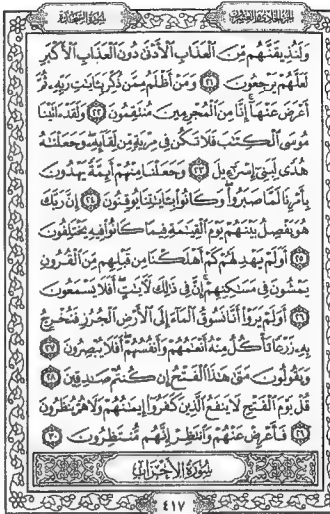 الجزء الحادي والعشرون سورة السجدة
وَلَنُذِيقَنَّهُم مِّنَ ٱلْعَذَابِ ٱلْأَدْنَىٰ دُونَ ٱلْعَذَابِ ٱلْأَكْبَرِ
لَعَلَّهُمْ يَرْجِعُونَ ٢١ وَمَنْ أَظْلَمُ مِمَّن ذُكِّرَ بِـَٔايَٰتِ رَبِّهِۦ ثُمَّ
أَعْرَضَ عَنْهَآ إِنَّا مِنَ ٱلْمُجْرِمِينَ مُنتَقِمُونَ ٢٢ وَلَقَدْ ءَاتَيْنَا
مُوسَى ٱلْكِتَٰبَ فَلَا تَكُن فِى مِرْيَةٍ مِّن لِّقَآئِهِۦ وَجَعَلْنَٰهُ
هُدًى لِّبَنِىٓ إِسْرَٰٓءِيلَ ٢٣ وَجَعَلْنَا مِنْهُمْ أَئِمَّةً يَهْدُونَ
بِأَمْرِنَا لَمَّا صَبَرُوا۟ وَكَانُوا۟ بِـَٔايَٰتِنَا يُوقِنُونَ ٢٤ إِنَّ رَبَّكَ
هُوَ يَفْصِلُ بَيْنَهُمْ يَوْمَ ٱلْقِيَٰمَةِ فِيمَا كَانُوا۟ فِيهِ يَخْتَلِفُونَ
٢٥ أَوَلَمْ يَهْدِ لَهُمْ كَمْ أَهْلَكْنَا مِن قَبْلِهِم مِّنَ ٱلْقُرُونِ
يَمْشُونَ فِى مَسَٰكِنِهِمْ إِنَّ فِى ذَٰلِكَ لَـَٔايَٰتٍ أَفَلَا يَسْمَعُونَ
٢٦ أَوَلَمْ يَرَوْا۟ أَنَّا نَسُوقُ ٱلْمَآءَ إِلَى ٱلْأَرْضِ ٱلْجُرُزِ فَنُخْرِجُ
بِهِۦ زَرْعًا تَأْكُلُ مِنْهُ أَنْعَٰمُهُمْ وَأَنفُسُهُمْ أَفَلَا يُبْصِرُونَ ٢٧
وَيَقُولُونَ مَتَىٰ هَٰذَا ٱلْفَتْحُ إِن كُنتُمْ صَٰدِقِينَ ٢٨
قُلْ يَوْمَ ٱلْفَتْحِ لَا يَنفَعُ ٱلَّذِينَ كَفَرُوٓا۟ إِيمَٰنُهُمْ وَلَا هُمْ يُنظَرُونَ
٢٩ فَأَعْرِضْ عَنْهُمْ وَٱنتَظِرْ إِنَّهُم مُّنتَظِرُونَ ٣٠
سُورَةُ الأَحْزَابِ
٤١٧